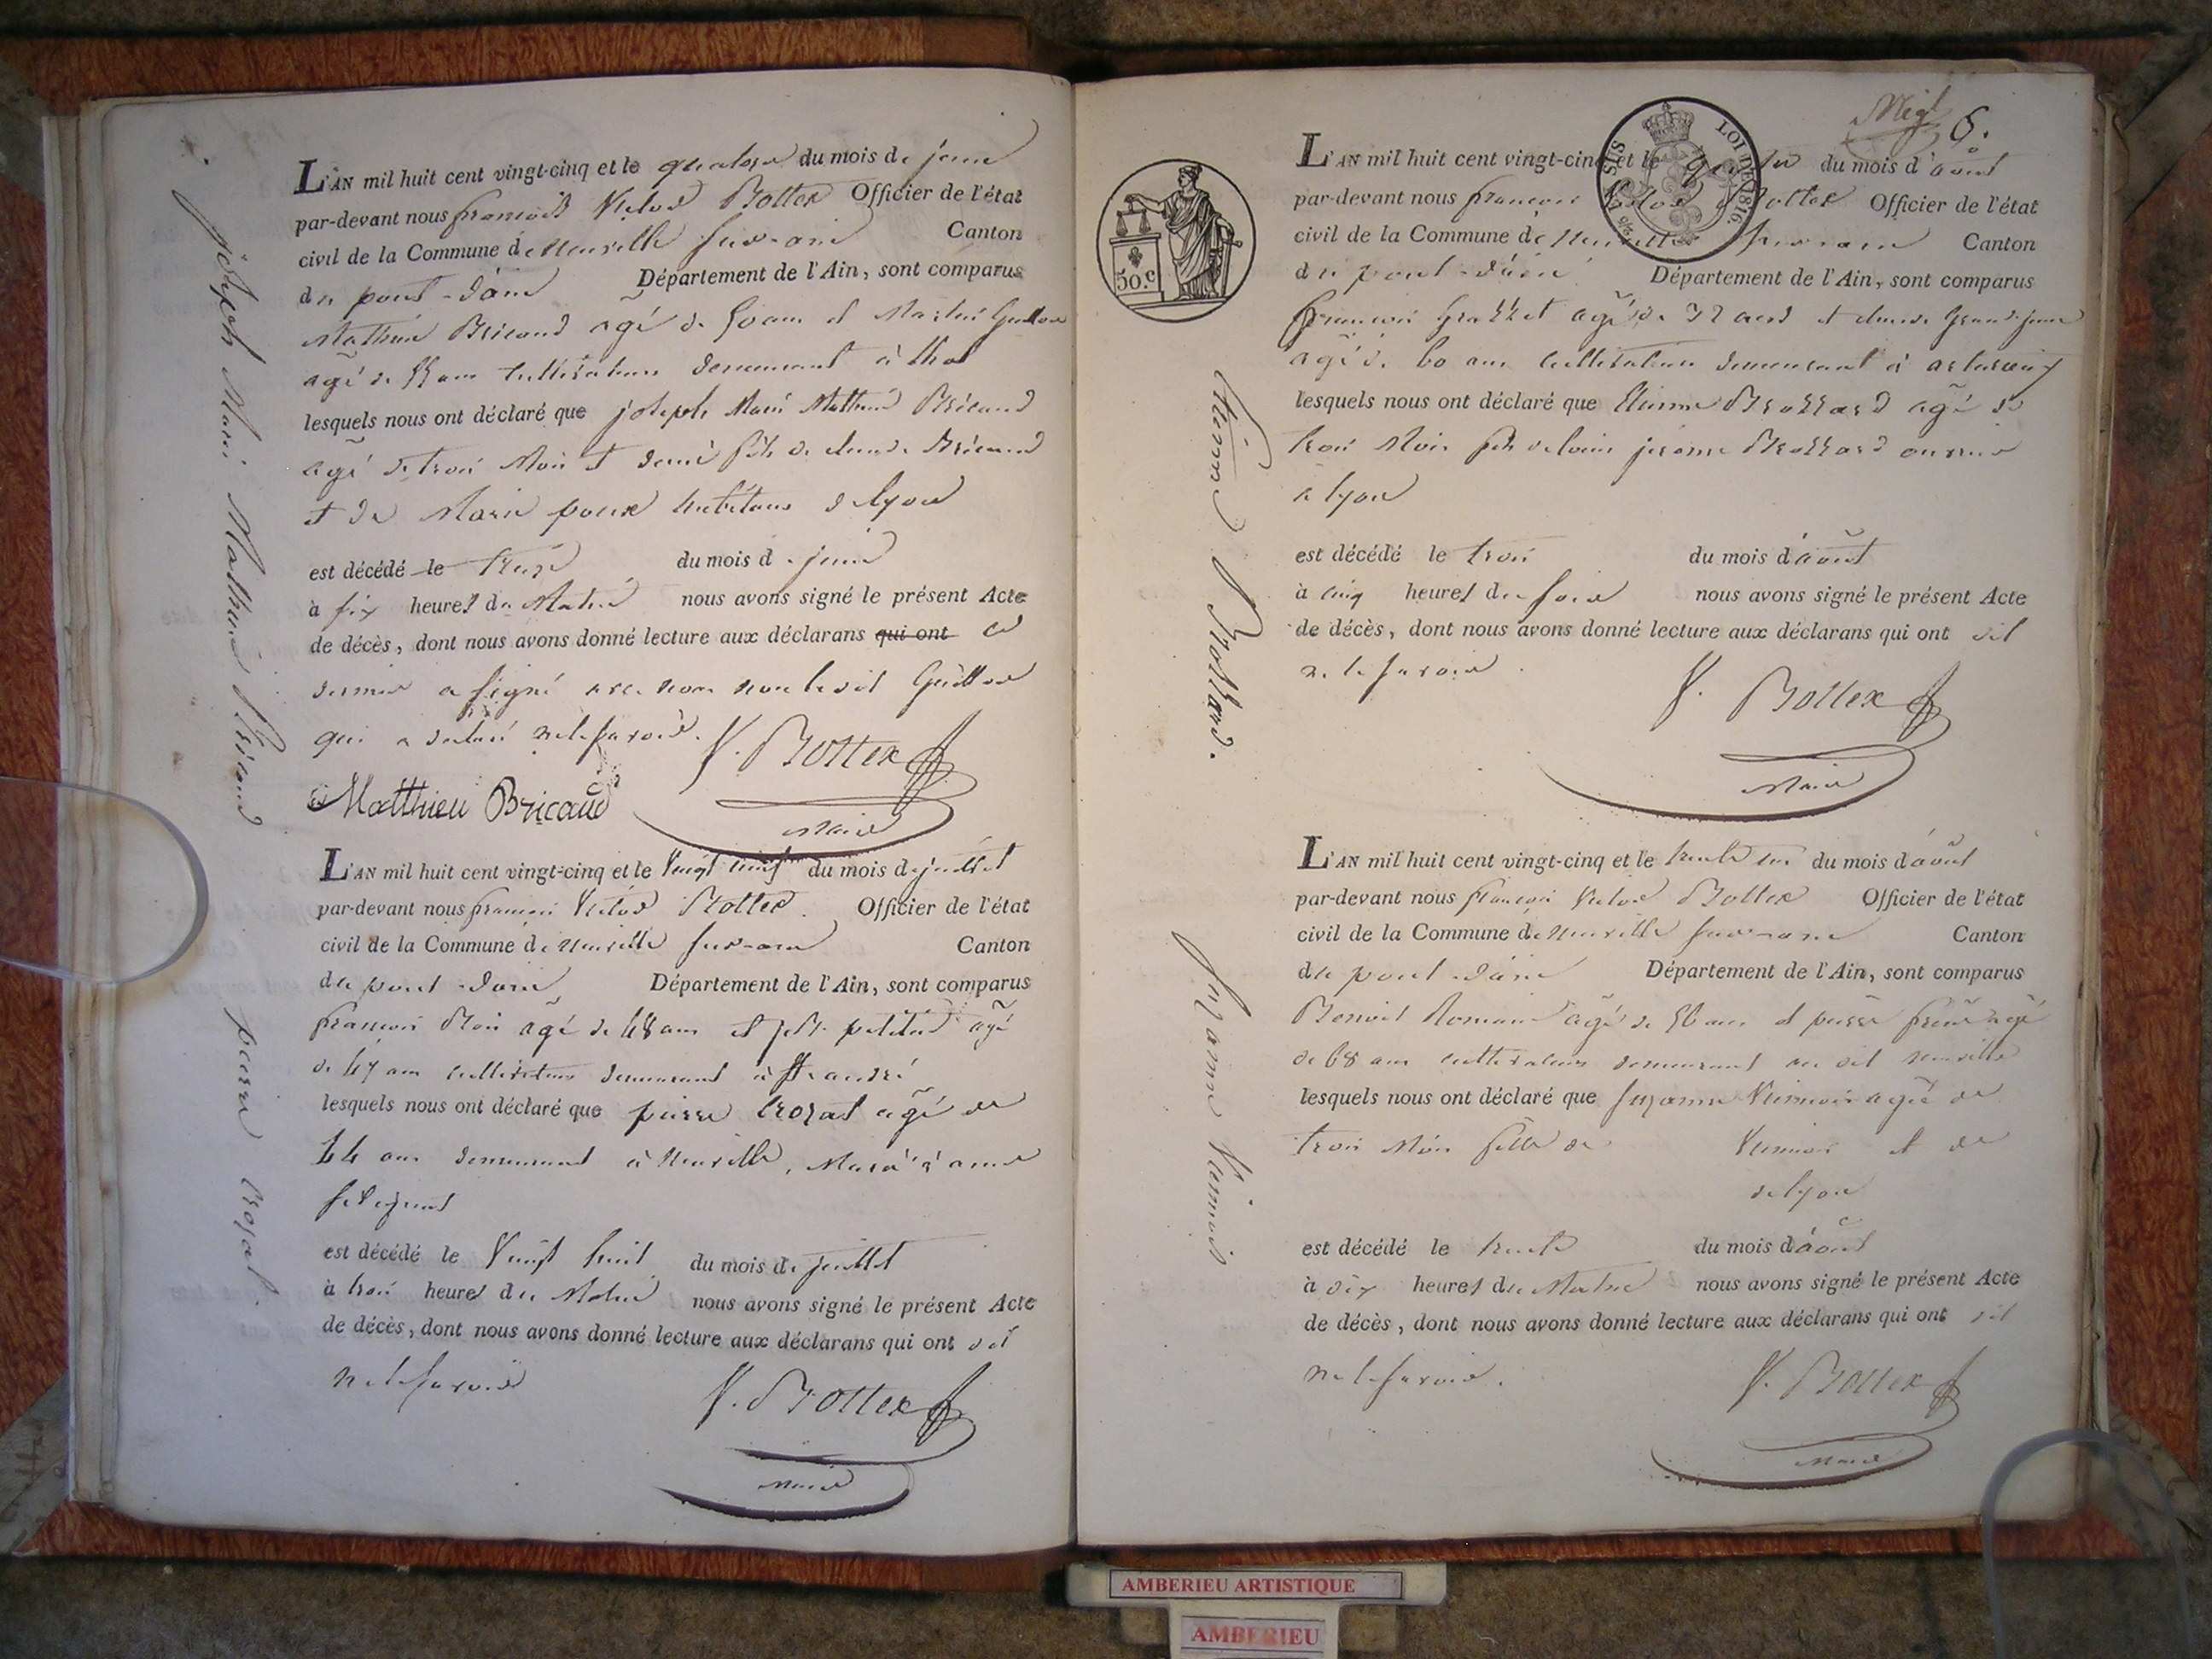 L'AN mil huit cent vingt-cinq et le quatorze du mois de juin
par-devant nous françois Victor Bottex Officier de l'état
civil de la Commune de Neuville sur-ain Canton
du pont-d'ain Département de l'Ain, sont comparus
Mathieu Bricaud agé de 50 ans et
agé de 55 ans cultivateurs demeurant à thol
lesquels nous ont déclaré que joseph Marie Mathieu Bricaud
agé de trois Mois et demi fils de claude Bricaud
et de Marie habitans de lyon
est décédé le treize du mois de juin
à six heures du Matin nous avons signé le présent Acte
de décès, dont nous avons donné lecture aux déclarans qui ont ce
dernier a signé avec nous non le dit
qui a declaré ne le savoir. V. Bottex
Matthieu Bricaud
Maire
joseph Marie Mathieu Bricaud
L'AN mil huit cent vingt-cinq et le Vingt neuf du mois de juillet
par-devant nous françois Victor Bottex. Officier de l'état
civil de la Commune de Neuville sur-ain Canton
du pont-d'ain Département de l'Ain, sont comparus
françois agé de 48 ans et petit agé
de 47 ans cultivateurs demeurant à
lesquels nous ont déclaré que pierre Crozat agé de
44 ans demeurant à Neuville, Marié à anne
est décédé le Vingt huit du mois de juillet
à trois heures du Matin nous avons signé le présent Acte
de décès, dont nous avons donné lecture aux déclarans qui ont dit
ne le savoir V. Bottex
Maire
pierre Crozat.
6.
LOI DE 1816.
50.c
L'AN mil huit cent vingt-cinq et le quatre du mois d'août
par-devant nous françois Victor Bottex Officier de l'état
civil de la Commune de Neuville sur-ain Canton
du pont-d'ain Département de l'Ain, sont comparus
françois agé de 32 ans et claude Grandjean
agé de 60 ans cultivateurs demeurant à
lesquels nous ont déclaré que Etienne Brossard agé de
trois Mois fils de louis jerome Brossard ouvrier
a lyon
est décédé le trois du mois d'août
à cinq heures du soir nous avons signé le présent Acte
de décès, dont nous avons donné lecture aux déclarans qui ont dit
ne le savoir. V. Bottex
Maire
Etienne Brossard.
L'AN mil huit cent vingt-cinq et le trente un du mois d'août
par-devant nous françois Victor Bottex Officier de l'état
civil de la Commune de Neuville sur-ain Canton
du pont-d'ain Département de l'Ain, sont comparus
Benoit Romain agé de 56 ans et pierre agé
de 68 ans cultivateurs demeurant au dit neuville
lesquels nous ont déclaré que suzanne agée de
trois Mois fille de et de
de lyon
est décédé le trente du mois d'août
à dix heures du Matin nous avons signé le présent Acte
de décès, dont nous avons donné lecture aux déclarans qui ont dit
ne le savoir. V. Bottex
Maire
suzanne
AMBERIEU ARTISTIQUE
AMBERIEU